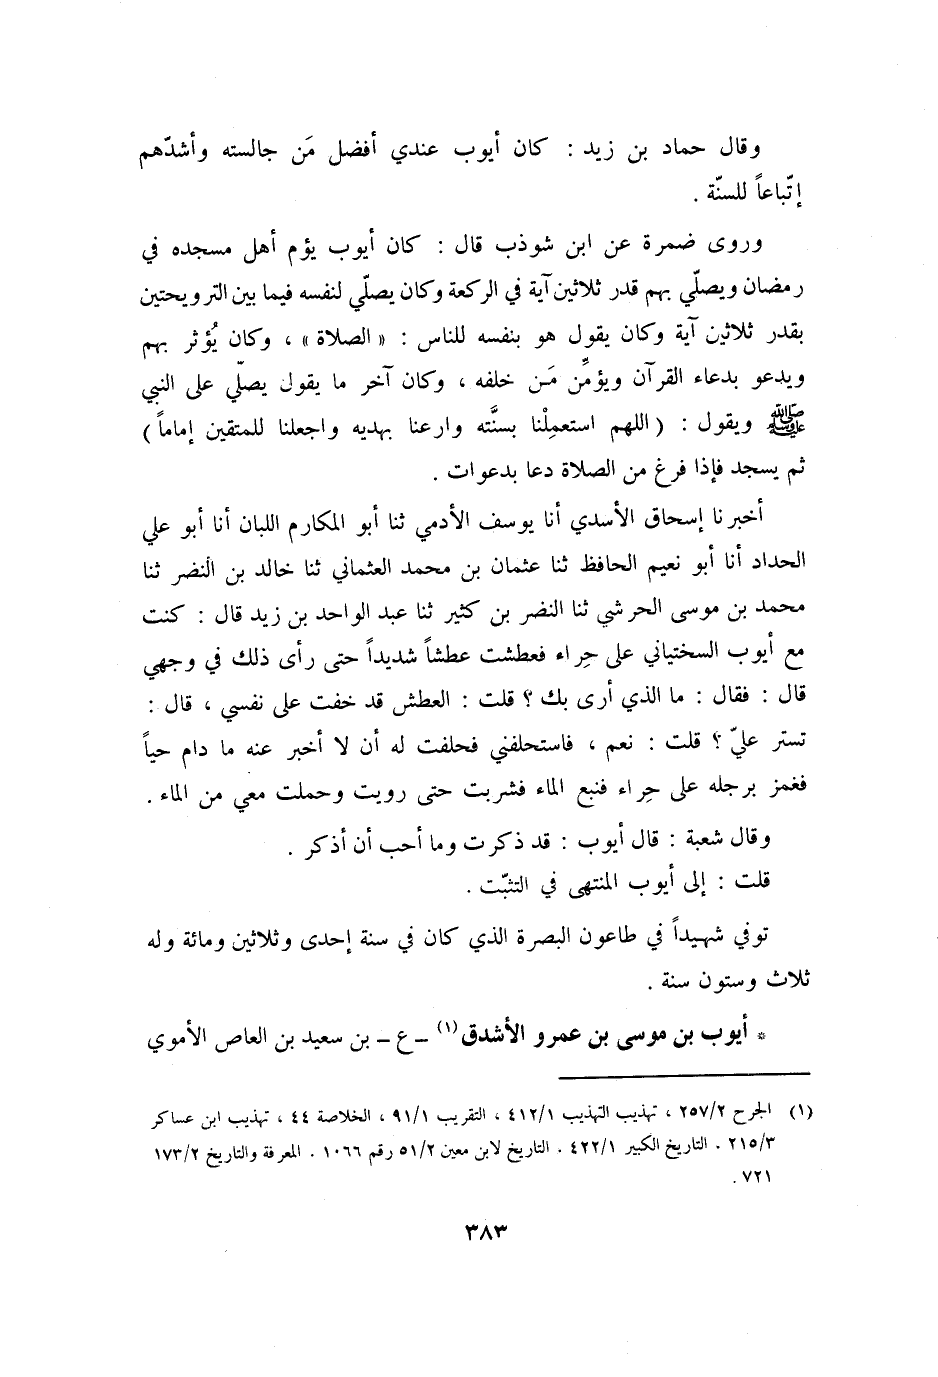 وقال حماد بن زيد : كان أيوب عندي أفضل مَن جالسته وأشدّهم
إتّباعاً للسنّة .
وروى ضمرة عن ابن شوذب قال : كان أيوب يؤم أهل مسجده في
رمضان ويصلّي بهم قدر ثلاثين آية في الركعة وكان يصلّي لنفسه فيما بين الترويحتين
بقدر ثلاثين آية وكان يقول هو بنفسه للناس : « الصلاة » ، وكان يُؤثر بهم
ويدعو بدعاء القرآن ويؤمِّن مَن خلفه ، وكان آخر ما يقول يصلّي على النبي
ﷺ ويقول : ( اللهم استعمِلْنا بسنَّته وارعنا بهديه واجعلنا للمتقين إماماً )
ثم يسجد فإذا فرغ من الصلاة دعا بدعوات .
أخبرنا إسحاق الأسدي أنا يوسف الأدمي ثنا أبو المكارم اللبان أنا أبو علي
الحداد أنا أبو نعيم الحافظ ثنا عثمان بن محمد العثماني ثنا خالد بن النضر ثنا
محمد بن موسى الحرشي ثنا النضر بن كثير ثنا عبد الواحد بن زيد قال : كنت
مع أيوب السختياني على حِراء فعطشت عطشاً شديداً حتى رأى ذلك في وجهي
قال : فقال : ما الذي أرى بك ؟ قلت : العطش قد خفت على نفسي ، قال :
تستر عليّ ؟ قلت : نعم ، فاستحلفني فحلفت له أن لا أخبر عنه ما دام حياً
فغمز برجله على حِراء فنبع الماء فشربت حتى رويت وحملت معي من الماء .
وقال شعبة : قال أيوب : قد ذكرت وما أحب أن أذكر .
قلت : إلى أيوب المنتهى في التثبّت .
توفي شهيداً في طاعون البصرة الذي كان في سنة إحدى وثلاثين ومائة وله
ثلاث وستون سنة .
* أيوب بن موسى بن عمرو الأشدق(١) ــ ع ــ بن سعيد بن العاص الأموي
(١) الجرح ٢٥٧/٢ ، تهذيب التهذيب ٤١٢/١ ، التقريب ٩١/١ ، الخلاصة ٤٤ ، تهذيب ابن عساكر
٢١٥/٣ . التاريخ الكبير ٤٢٢/١ . التاريخ لابن معين ٥١/٢ رقم ١٠٦٦ . المعرفة والتاريخ ١٧٣/٢
٧٢١ .
٣٨٣